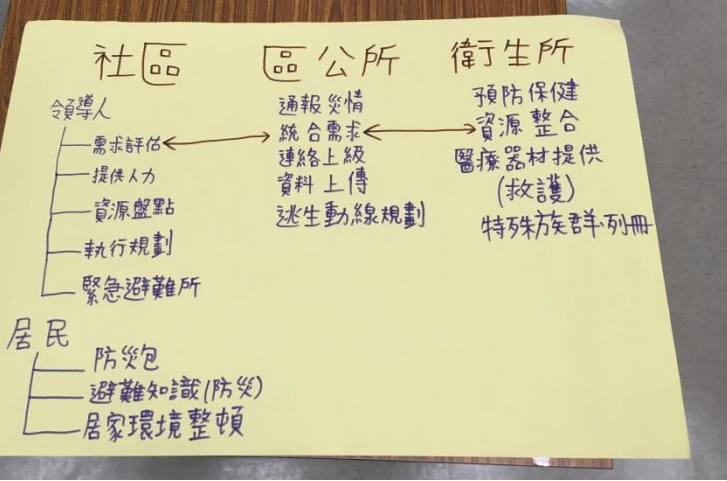 社區
領導人
需求評估
提供人力
資源盤點
執行規劃
緊急避難所
居民
防災包
避難知識(防災)
居家環境整頓
區公所
通報災情
統合需求
連絡上級
資料上傳
逃生動線規劃
衛生所
預防保健
資源整合
醫療器材提供
(救護)
特殊族群列冊